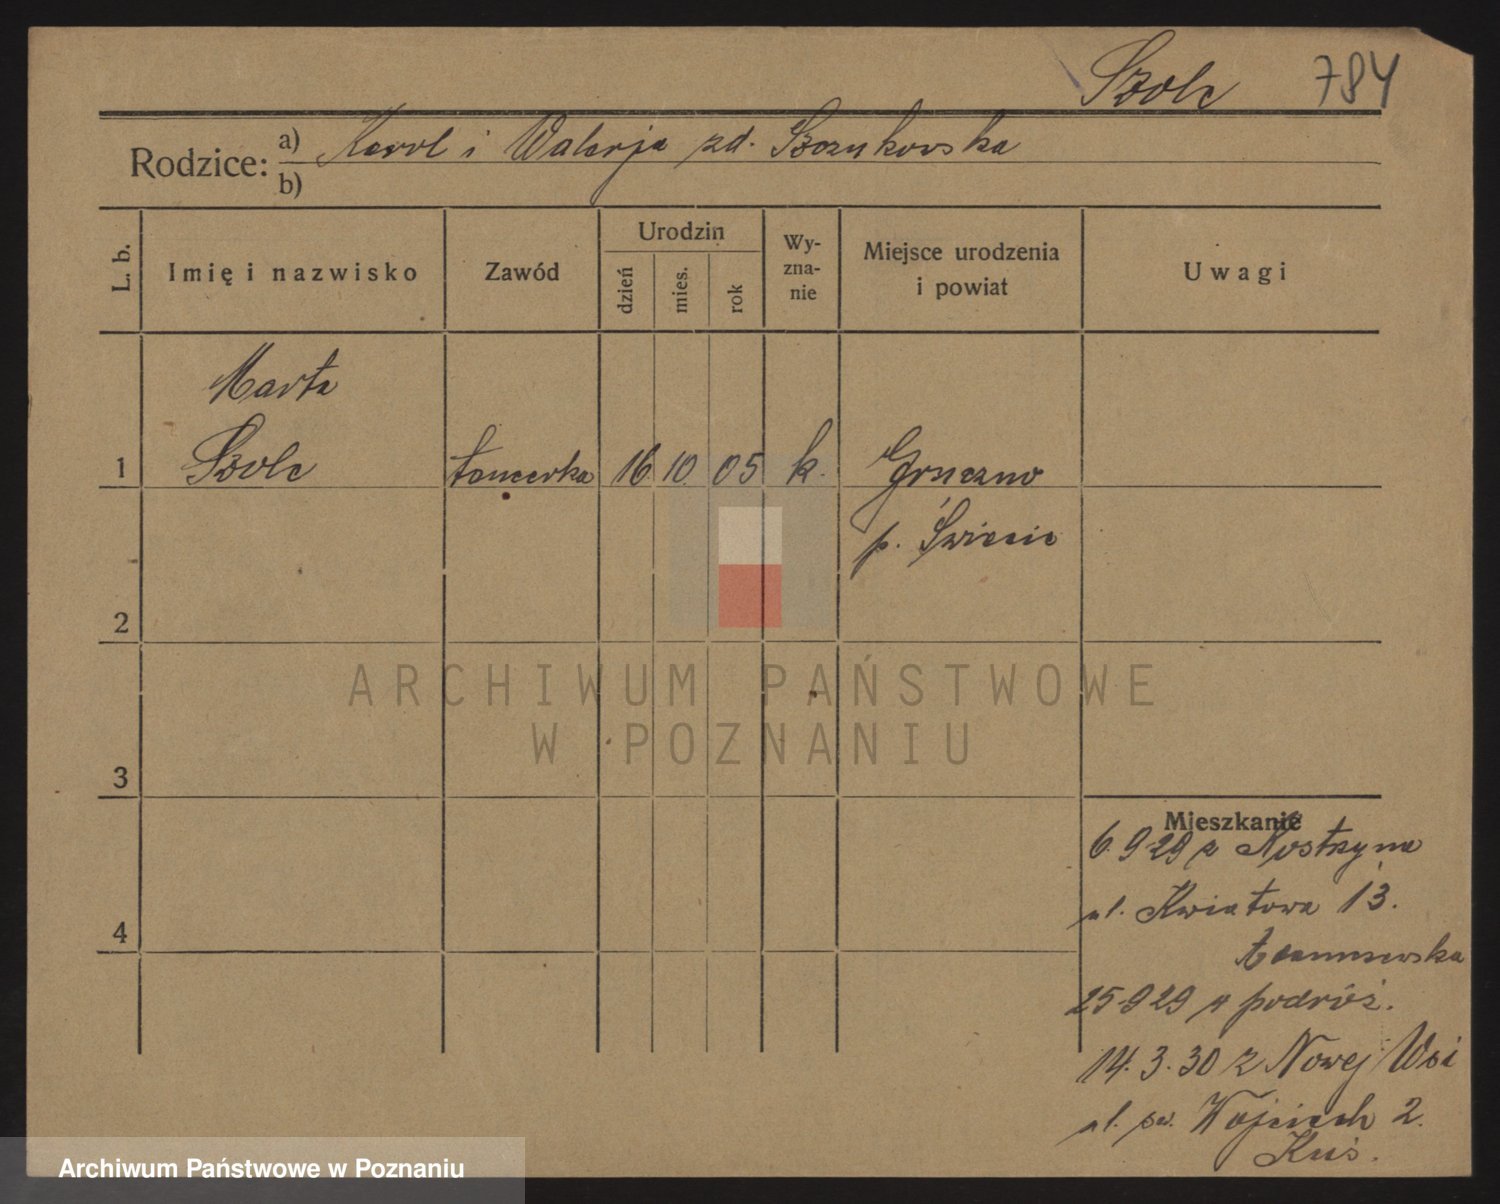 Szolc 784
Rodzice: a) Karol i Walerja zd. Szczukowska
b)
L. b. Imię i nazwisko Zawód Urodzin dzień mies. rok Wyzna-nie Miejsce urodzenia i powiat Uwagi
Marta
1 Szolc tancerka 16 10 05 k. Gruczno
p. Świecie
2
3
4
Mieszkanie
6.9 29 z Kostrzyna
ul. Kwiatowa 13.
25 9 29 w podróż.
14. 3. 30 z Nowej Wsi
ul. św. Wojciech 2.
Kuś.
ARCHIWUM PAŃSTWOWE
W POZNANIU
Archiwum Państwowe w Poznaniu